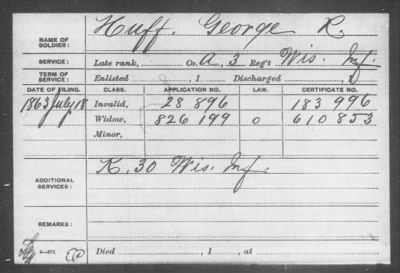 NAME OF SOLDIER: Huff, George R.
SERVICE: Late rank, Co. A, 3 Reg't Wis. Inf.
TERM OF SERVICE: Enlisted , 1 Discharged , 1
DATE OF FILING. CLASS. APPLICATION NO. LAW. CERTIFICATE NO.
1863 July 18 Invalid, 28 896 183 996
Widow, 826 199 0 610 853
Minor,
ADDITIONAL SERVICES: K, 30 Wis. Inf.
REMARKS:
3—071
Died , 1 , at